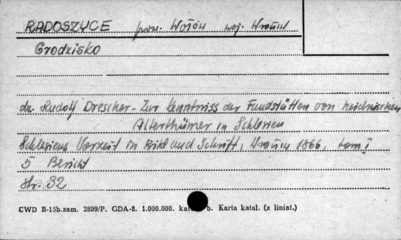 RADOSZYCE pow. Wołów woj. Wrocław
Grodzisko
dr. Rudolf Drescher - Zur Kenntniss der Fundstätten von heidnischen
Alterthümer in Schlesien
Schlesiens Vorzeit in Bild und Schrift, 1866, tom I
5 Bericht
Str. 32
CWD B-15b.zam. 2899/P. GDA-8. 1.000.000. b. Karta katal. (z liniat.)